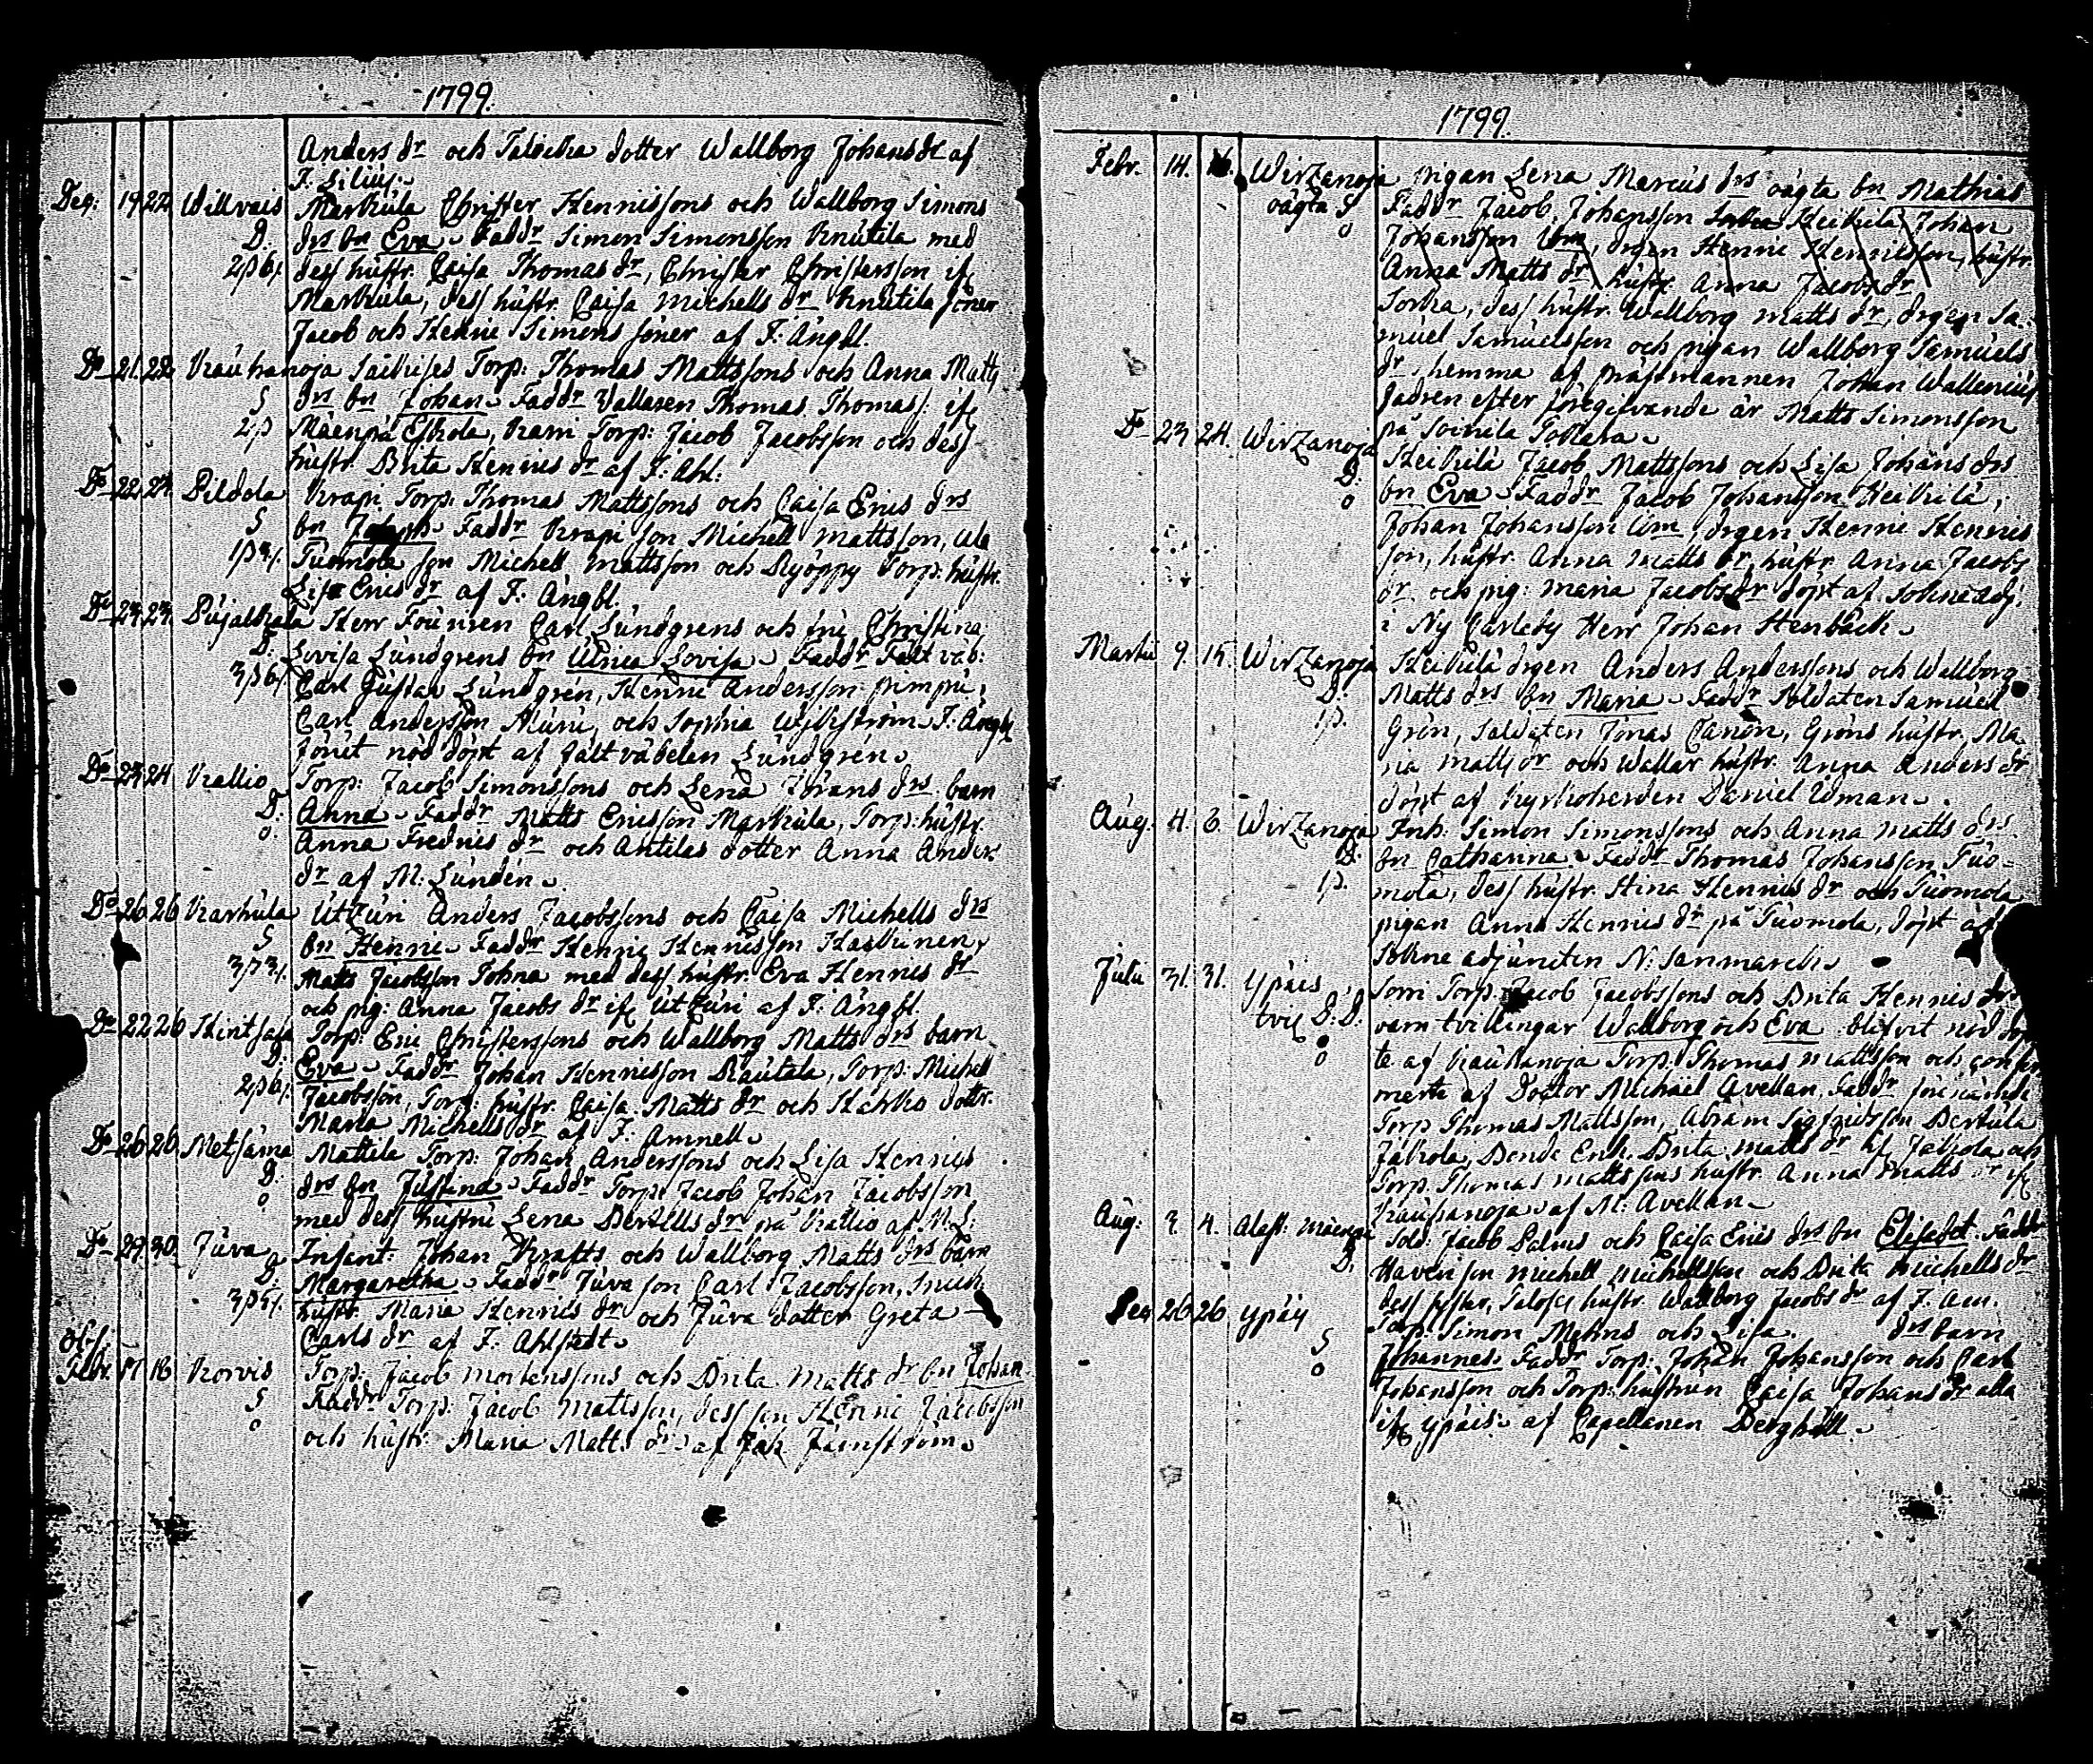 1799.
Anders dr och Talvika dotter Wallborg Johans dr af
F. Lilius.
Dec: 19 22 Willvais Markula Christer Hennissons och Wallborg Simons
D. drs bn Eva. Faddr Simon Simonsson Knutila med
2ß6. dess hustr. Caisa Thomas dr, Christer Christersson if
Markula, dess hustr. Caisa Michells dr Knutila söner
Jacob och Henric Simons söner af F: Ångbl.
Do 21. 22. Rauhanoja Torp: Thomas Mattssons och Anna Matts
S drs bn Johan. Faddr Thomas Thomass: if
2ß Eskola, Torp: Jacob Jacobsson och dess
hustr. Brita Hennics dr af F. Ahl:
Do 22. 24. Pildola Krapi Torp: Thomas Mattssons och Caisa Erics drs
S bn Faddr Krapi son Michell Mattsson,
1ß Tuomola son Michell Mattsson och Torp: hustr.
Lisa Erics dr af F. Ångbl.
Do 23. 23. Herr Carl Sundgrens och fru Christina
D: Lovisa Sundgrens bn Ulrica Lovisa. Faddr Fält väb:
3ß6. Carl Gustaf Sundgrén, Henric Andersson Pimpu,
Carl Andersson Muru, och Sophia F: Ångbl
förut nöd döpt af fält väbelen Sundgrén.
Do 23 24 Kallio Torp: Jacob Simonssons och Lena Jörans drs barn
D: Anna. Faddr Matts Ericsson Markula, Torp: hustr.
o. Anna Fredrics dr och Antilas dotter Anna Anders
dr af M: Lundén.
Do 26 26 Karhula Anders Jacobssons och Caisa Michells drs
S bn Henric. Faddr Henric Hennicsson
3ß3. Matts Jacobsson med dess hustr. Eva Hennics dr
och pig: Anna Jacobs dr if af F: Ångbl.
Do 22 26 Torp: Eric Christerssons och Wallborg Matts drs barn
D: Eva. Faddr Johan Hennicsson Rautala, Torp: Michel
2ß6. Jacobsson, Torp: hustr. Caisa Matts dr och dottr:
Maria Michells dr af F: Amnell.
Do 26 26. Mattila Torp: Johan Anderssons och Lisa Hennics
D: drs bn Justina. Faddr Torp: Jacob Johan Jacobsson
o med dess hustru Lena Bertills dr på Kallio af M. L:
Do 29 30. Juva Infant: Johan Krafts och Wallborg Matts drs barn
D: Margaretha. Faddr Juva son Carl Jacobsson,
3ß hustr. Maria Hennics dr och Juva dotter Greta
Carls dr af F: Ahlstedt.
Febr. 17 18 Korvis Torp: Jacob Mortenssons och Brita Matts dr bn Johan
S Faddr Torp: Jacob Mattsson, dess son Henric Jacobsson
o och hustr: Maria Matts dr af Joh: Järnström.
1799.
Febr. 14. 16. Wirzanoja Pigan Lena Marcus drs oägta bn Mathias
oägta S Faddr Jacob Johansson Heikilä, Johan
o Johansson Um, drgen Henric Hennicsson, hustr.
Anna Matts dr hustr. Anna Jacobs dr
dess hustr. Wallborg Matts dr, drgen Sa-
muel Samuelsson och pigan Wallborg Samuels
dr, hemma af prästmannen Johan Wallenius
fadren efter föregifvande är Matts Simonsson
på Soinila
Do 23 24. Wirzanoja Heikilä Jacob Mattssons och Lisa Johans drs
D. bn Eva. Faddr Jacob Johansson Heikilä,
o Johan Johansson Um, drgen Henric Hennics
son, hustr. Anna Matts dr, hustr. Anna Jacobs
dr och pig: Maria Jacobs dr döpt af Sokne adj.
i Ny Carleby Herr Johan Stenbäck.
Martii 9. 15. Wirzanoja Heikilä drgen Anders Anderssons och Wallborg
D: Matts drs bn Maria. Faddr Soldaten Samuel
1ß. Grön, Soldaten Jonas Canon, Gröns hustr. Ma-
ria Matts dr och Wallar hustr. Anna Anders dr
döpt af Kyrkoherden Daniel Uman.
Aug: 4. 6. Wirzanoja Inh: Simon Simonssons och Anna Matts drs
D. bn Catharina. Faddr Thomas Johansson Tuo-
1ß. mola, dess hustr. Stina Hennics dr och Tuomola
pigan Anna Hennics dr på Tuomola, döpt af
Sokne adjuncten N: Sanmarck.
Julii 31. 31. Ypäis Torp: Jacob Jacobssons och Brita Hennics drs
tvil D: D: barn tvillingar Wallborg och Eva blifvit nöd döp
o te af Raukanoja Torp: Thomas Mattsson och
merte af Doctor Michael Avellan. Faddr
Torp: Thomas Mattsson, Abram Sigfridsson Bertula
Brita Matts dr och
Torp: Thomas Mattssons hustr. Anna Matts dr if
af M: Avellan.
Aug: 3. 4. Sold: Jacob Palms och Caisa Erics drs bn Elisabet. Faddr
D. Michell Michellsson och Brita Michells dr
dess syster, hustr. Wallborg Jacobs dr af F.
26 26 Ypäis Torp: Simon och Lisa drs barn
S Johannes. Faddr Torp: Johan Johansson och Carl
o Johansson och Torp: hustrun Caisa Johans dr alla
if Ypäis: af Capellanen Berghäll.